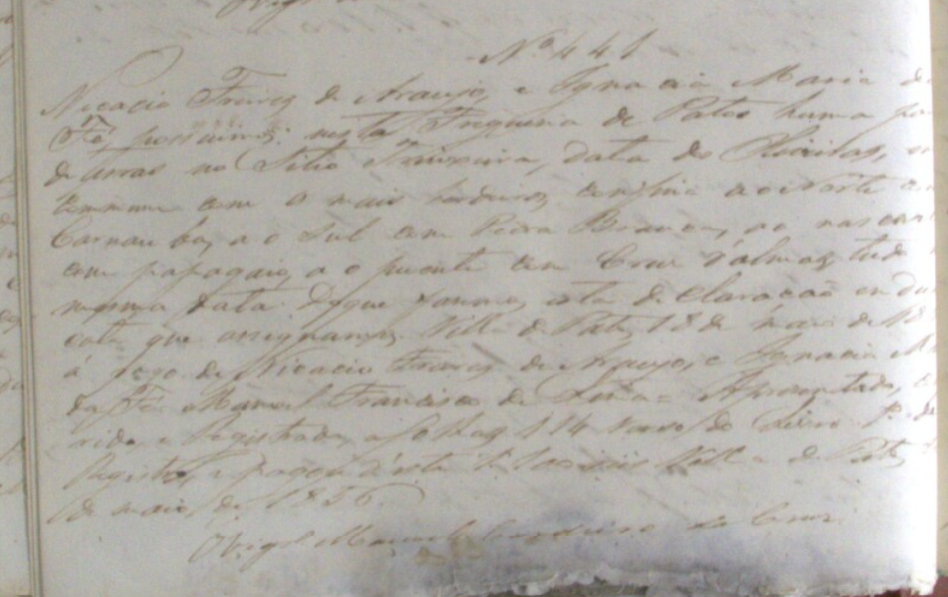 Nº 441
Nicacio Freires de Araujo, e Ignacia Maria da
Fé, possuimos nesta Freguesia de Patos huma
de terras no Sitio Teixeira, data de
commum com o mais herdeiros, confina ao Norte
Carnauba, ao Sul com Pedra Branca, ao nascente
com papagaio, ao puente com Cruz d'almas, tudo
mesma data. Do que fasemos esta declaração em
cata que assignamos. Villa de Patos, 18 de maio de 18
á rogo de Nicacio Freires de Araujo, e Ignacia M
da Fé Manoel Francisco de = Apresentada,
rida e Registrada a folhas 114 verso do Livro 1º de
Registro, e pagou d'esta Villa de Patos
de maio de 1856.
O Vigrº Manoel Cordeiro da Cruz